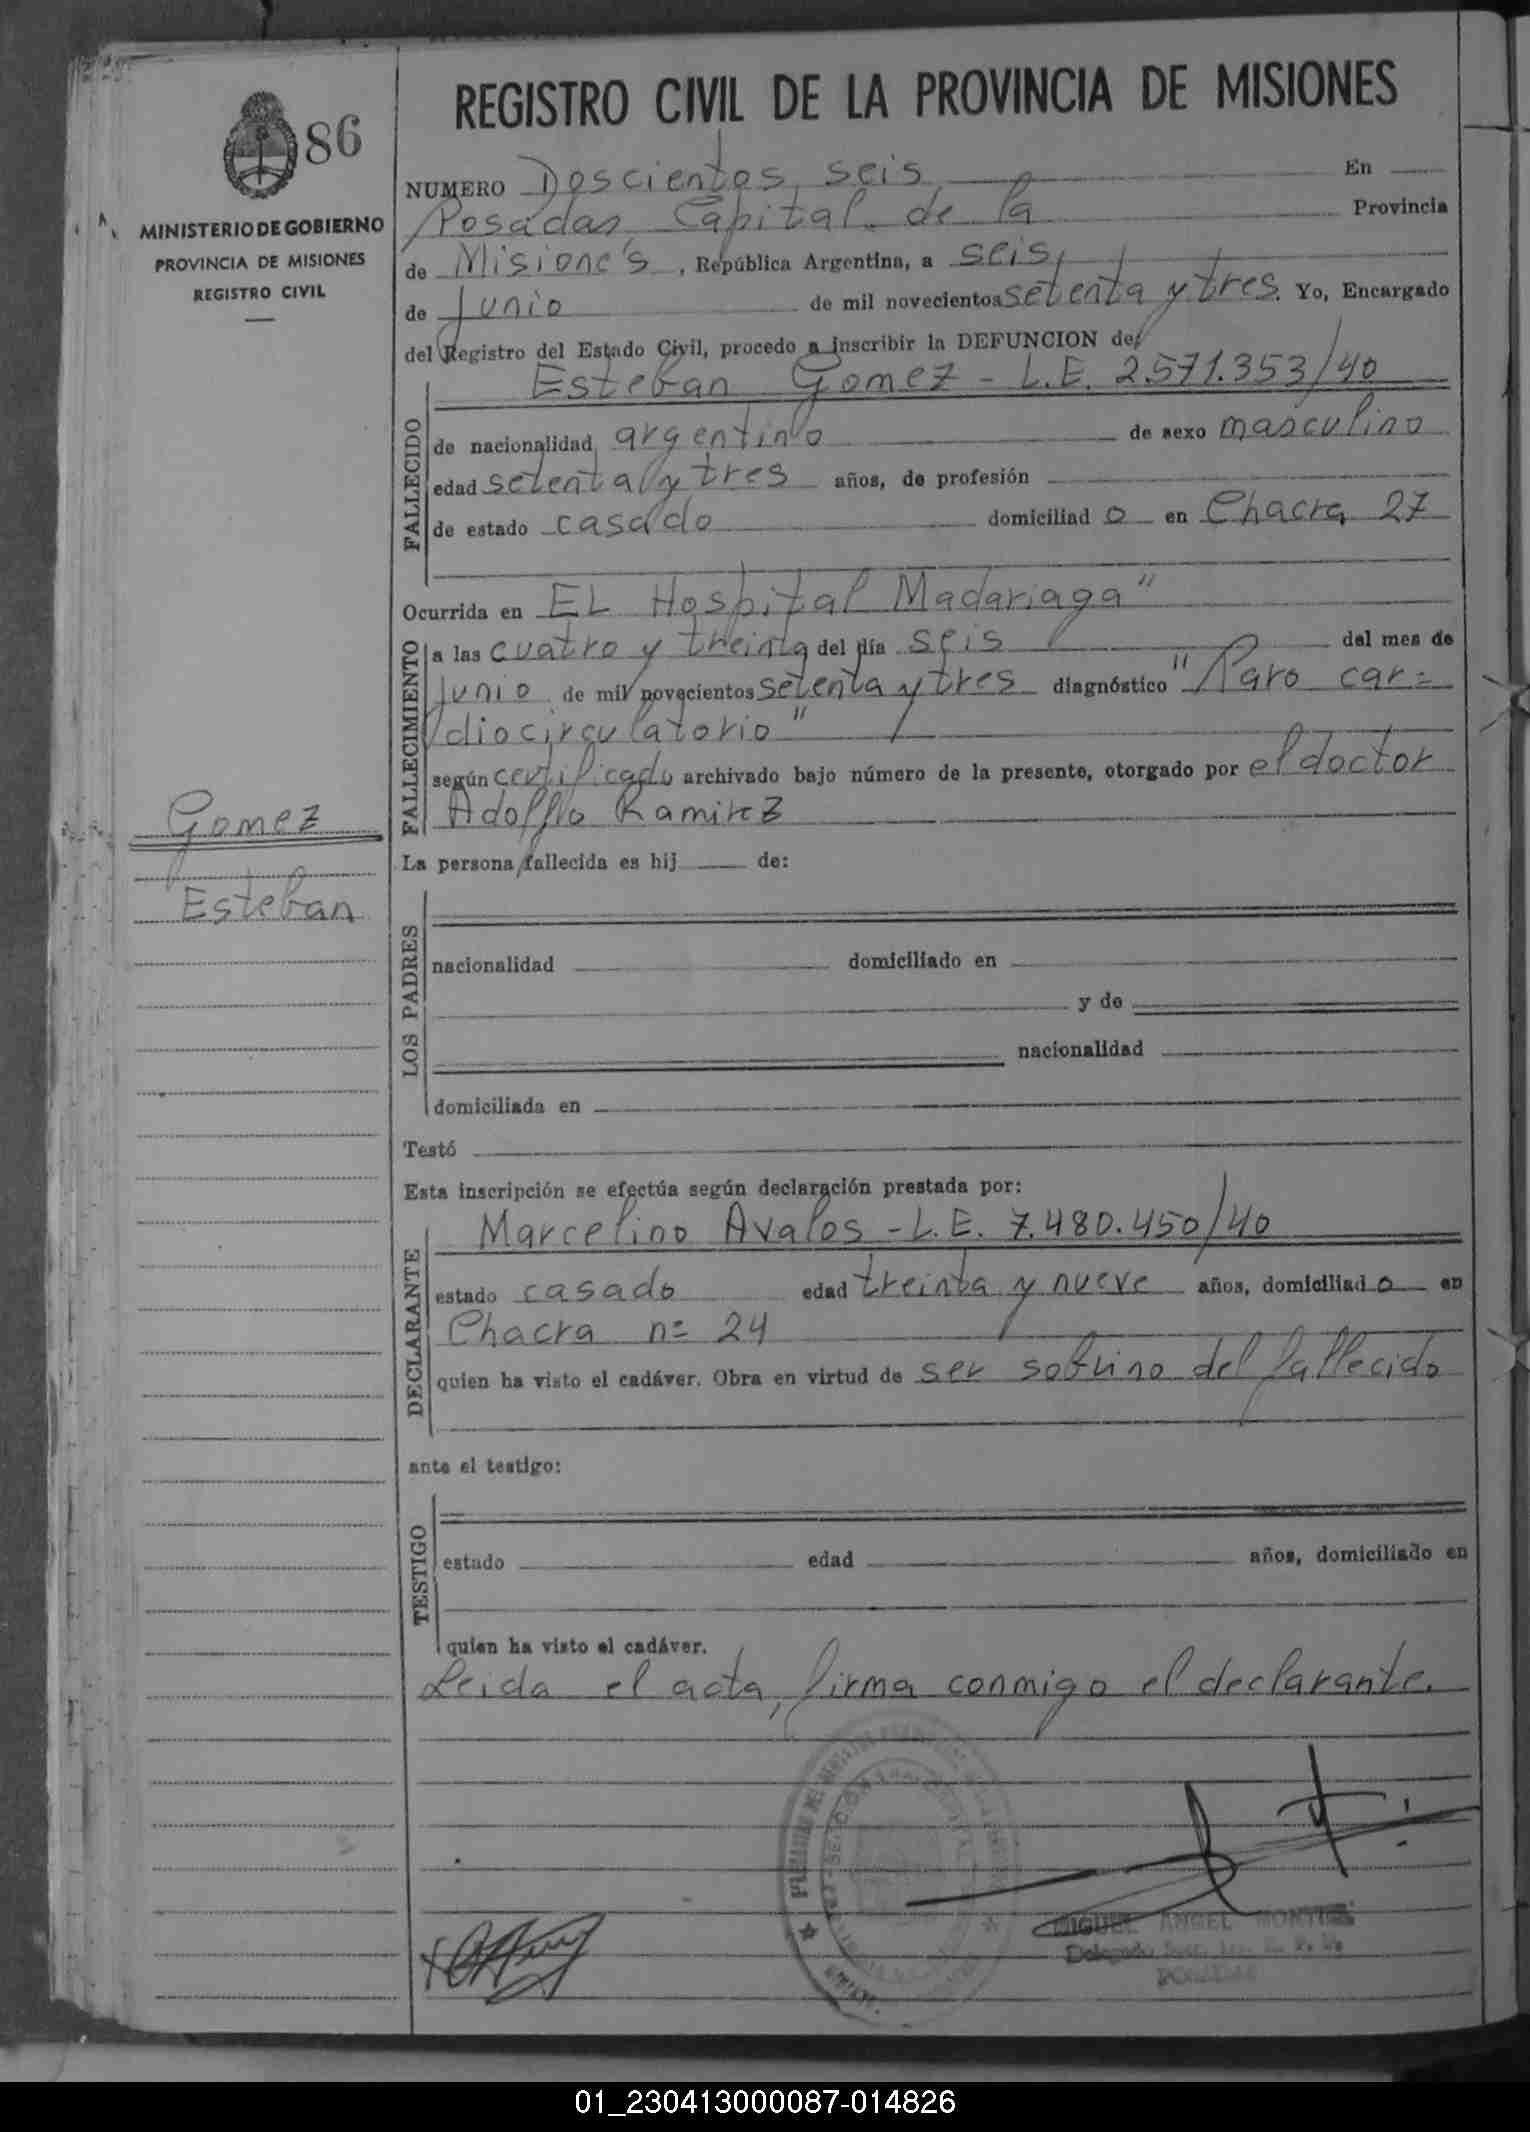 86
MINISTERIO DE GOBIERNO
PROVINCIA DE MISIONES
REGISTRO CIVIL
REGISTRO CIVIL DE LA PROVINCIA DE MISIONES
NUMERO Doscientos seis En
Posadas, Capital de la Provincia
de Misiones, República Argentina, a seis
de Junio de mil novecientos setenta y tres. Yo, Encargado
del Registro del Estado Civil, procedo a inscribir la DEFUNCION de
Esteban Gomez - L.E. 2.571.353/40
FALLECIDO
de nacionalidad argentino de sexo masculino
edad setenta y tres años, de profesión
de estado casado domiciliad o en Chacra 27
Ocurrida en EL Hospital Madariaga"
FALLECIMIENTO
a las cuatro y treinta del día seis del mes de
Junio de mil novecientos setenta y tres diagnóstico "Paro car=
diocirculatorio"
según certificado archivado bajo número de la presente, otorgado por el doctor
Adolfo Ramirez
Gomez
Esteban
La persona fallecida es hij de:
LOS PADRES
nacionalidad domiciliado en
y de
nacionalidad
domiciliada en
Testó
Esta inscripción se efectúa según declaración prestada por:
Marcelino Avalos - L.E. 7.480.450/40
DECLARANTE
estado casado edad treinta y nueve años, domiciliad o en
Chacra n= 24
quien ha visto el cadáver. Obra en virtud de ser sobrino del fallecido
ante el testigo:
TESTIGO
estado edad años, domiciliado en
quien ha visto el cadáver.
Leida el acta, firma conmigo el declarante.
MIGUEL ANGEL
01_230413000087-014826